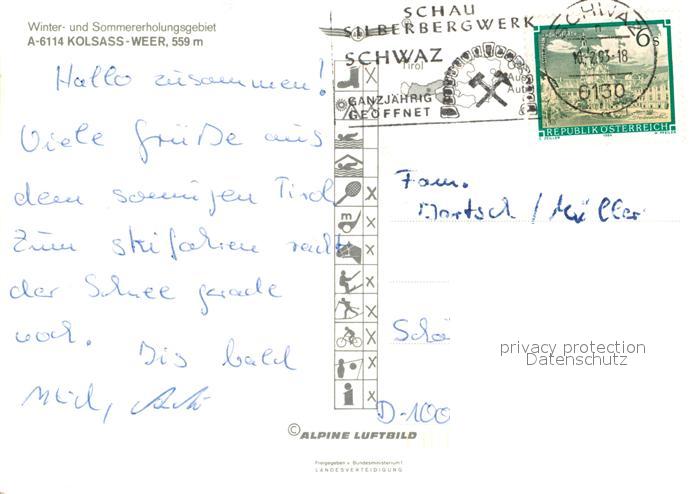 Winter- und Sommererholungsgebiet
A-6114 KOLSASS-WEER, 559 m
Hallo zusammen!
Viele Grüße aus
dem sonnigen Tirol
Zum skifahren reicht
der Schnee gerade
noch. Bis bald
SCHAU
SILBERBERGWERK
SCHWAZ
Tirol
GANZJÄHRIG
GEÖFFNET
SCHWAZ
6130
6 S
REPUBLIK ÖSTERREICH
Fam.
/ Müller
Schö
D-100
privacy protection
Datenschutz
© ALPINE LUFTBILD
Freigegeben v. Bundesministerium f.
LANDESVERTEIDIGUNG